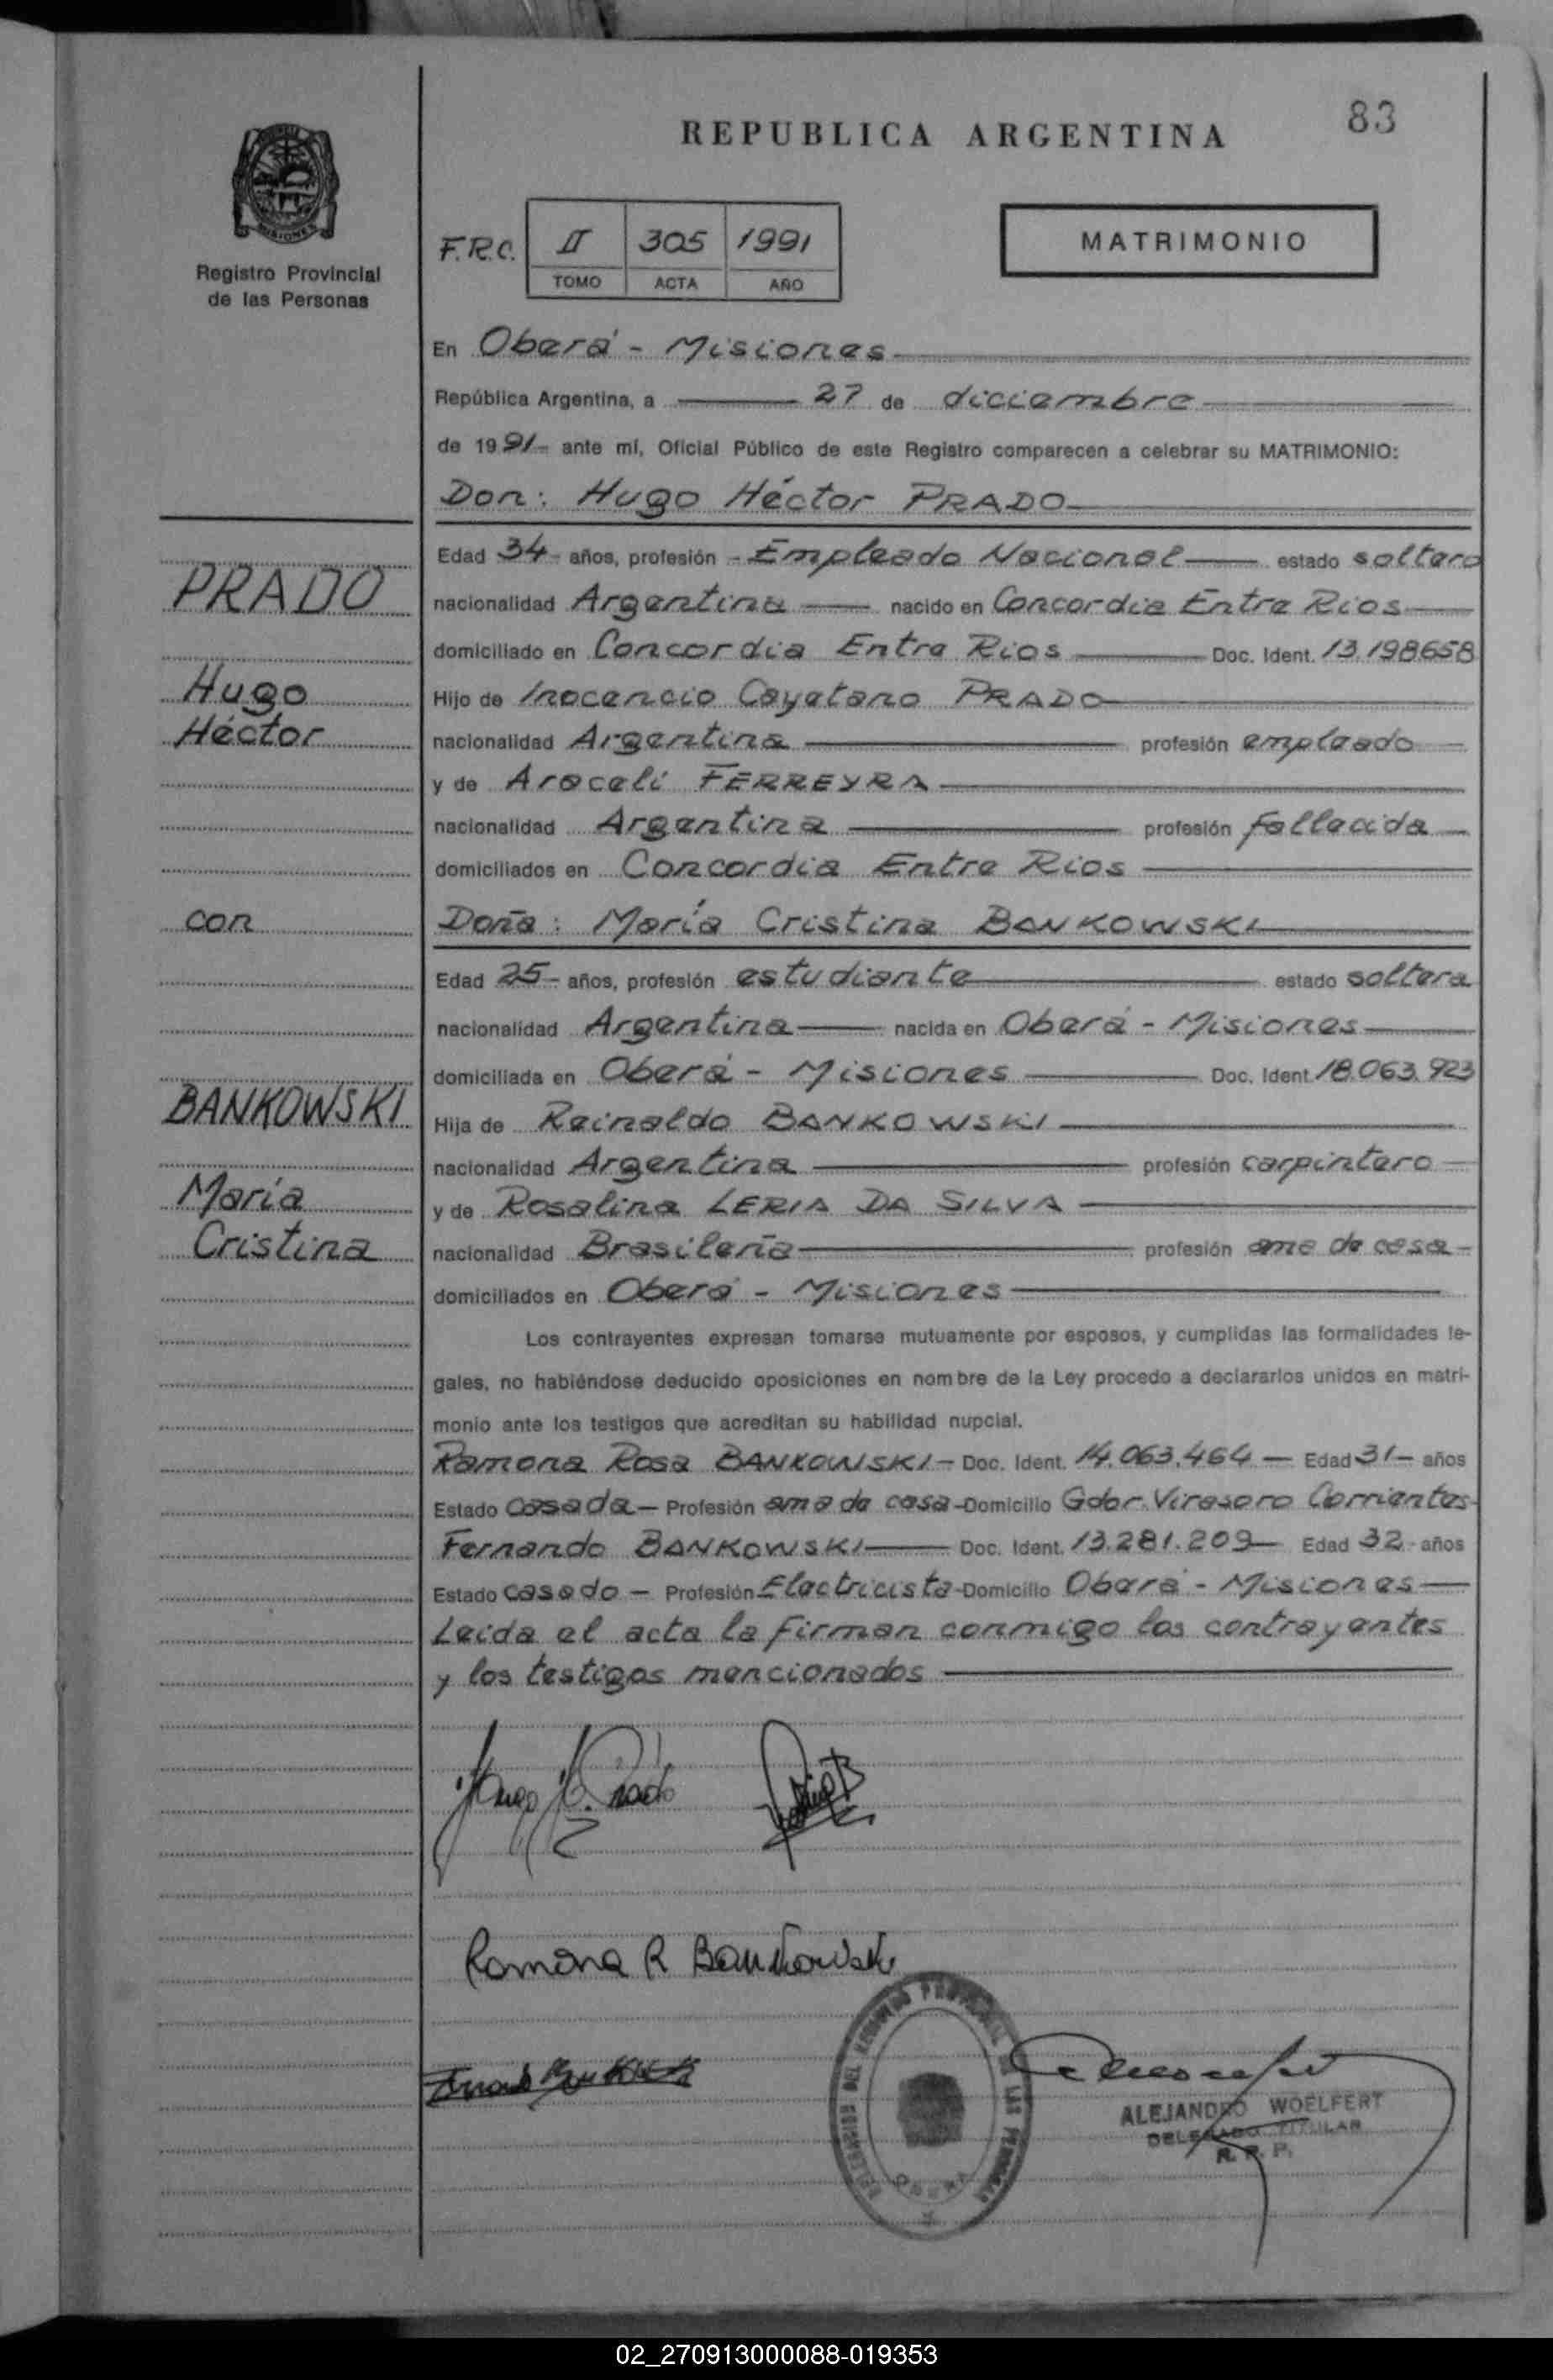 83
REPUBLICA ARGENTINA
MISIONES
Registro Provincial
de las Personas
F.R.C. II 305 1991
TOMO ACTA AÑO
MATRIMONIO
En Oberá - Misiones
República Argentina, a 27 de diciembre
de 1991 - ante mí, Oficial Público de este Registro comparecen a celebrar su MATRIMONIO:
Don: Hugo Héctor PRADO
Edad 34 - años, profesión - Empleado Nacional estado soltero
PRADO
nacionalidad Argentina nacido en Concordia Entre Rios
domiciliado en Concordia Entre Rios Doc. Ident. 13.198658
Hugo
Hijo de Inocencio Cayetano PRADO
Héctor
nacionalidad Argentina profesión empleado
y de Araceli FERREYRA
nacionalidad Argentina profesión fallecida
domiciliados en Concordia Entre Rios
con
Doña: María Cristina BANKOWSKI
Edad 25 - años, profesión estudiante estado soltera
nacionalidad Argentina nacida en Oberá - Misiones
domiciliada en Oberá - Misiones Doc. Ident. 18.063.923
BANKOWSKI
Hija de Reinaldo BANKOWSKI
nacionalidad Argentina profesión carpintero
María
y de Rosalina LERIA DA SILVA
Cristina
nacionalidad Brasileña profesión ama de casa
domiciliados en Oberá - Misiones
Los contrayentes expresan tomarse mutuamente por esposos, y cumplidas las formalidades le-
gales, no habiéndose deducido oposiciones en nombre de la Ley procedo a declararlos unidos en matri-
monio ante los testigos que acreditan su habilidad nupcial.
Ramona Rosa BANKOWSKI - Doc. Ident. 14.063.464 - Edad 31 - años
Estado Casada - Profesión ama de casa - Domicilio Gdor. Virasoro Corrientes
Fernando BANKOWSKI Doc. Ident. 13.281.209 Edad 32 - años
Estado casado - Profesión Electricista - Domicilio Oberá - Misiones
Leida el acta la firman conmigo los contrayentes
y los testigos mencionados
Hugo H. Prado
Ramona R Bankowski
ALEJANDRO WOELFERT
DELEGADO TITULAR
R. P. P.
02_270913000088-019353